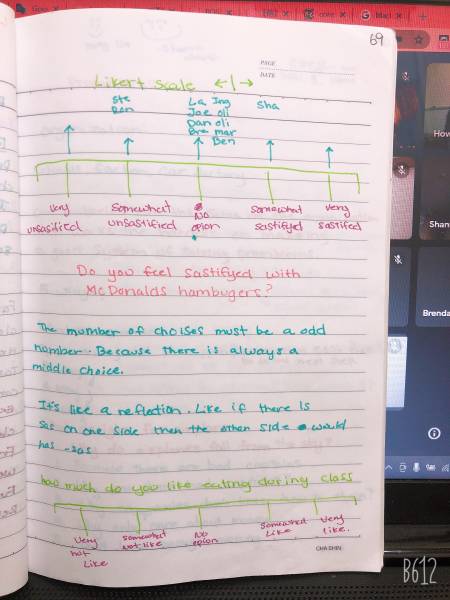 69
PAGE
DATE
Likert Scale ← | →
Ste
Ron
La Jng
Jae oli
Dan oli
Bre mar
Ben
Sha
very unsasified
somewhat unsastified
No opion
somewhat sastifyed
very sastifed
Do you feel sastifyed with
McDonalds hambugers?
The number of choises must be a odd
number. Because there is always a
middle choice.
It's like a reflection. Like if there is
sas on one side then the other side would
has -sas
how much do you like eating during class
very not Like
somewhat not like
No opion
somewhat Like
very like.
CHA SHIN
How
Shan
Brenda
B612